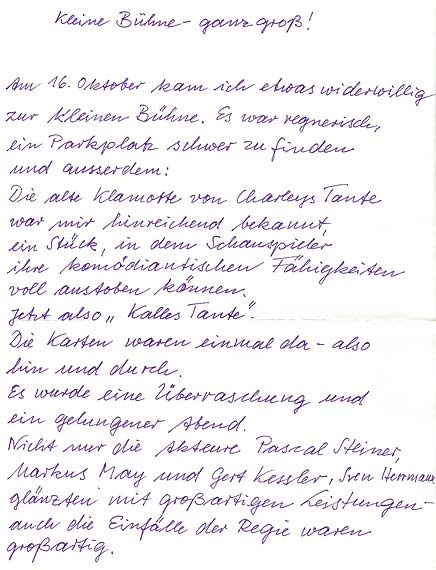 Kleine Bühne - ganz groß!
Am 16. Oktober kam ich etwas widerwillig
zur Kleinen Bühne. Es war regnerisch,
ein Parkplatz schwer zu finden
und ausserdem:
Die alte Klamotte von Charleys Tante
war mir hinreichend bekannt,
ein Stück, in dem Schauspieler
ihre komödiantischen Fähigkeiten
voll austoben können.
Jetzt also „Kalles Tante".
Die Karten waren einmal da - also
hin und durch.
Es wurde eine Überraschung und
ein gelungener Abend.
Nicht nur die Akteure Pascal Steiner,
Markus May und Gert Kessler, Sven Herrmann
glänzten mit großartigen Leistungen -
auch die Einfälle der Regie waren
großartig.